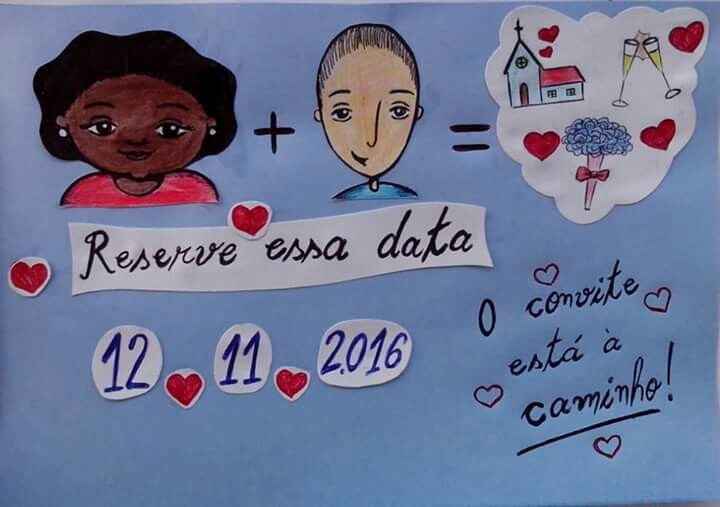 + =
Reserve essa data
12 11 2016
O convite
está à
caminho!